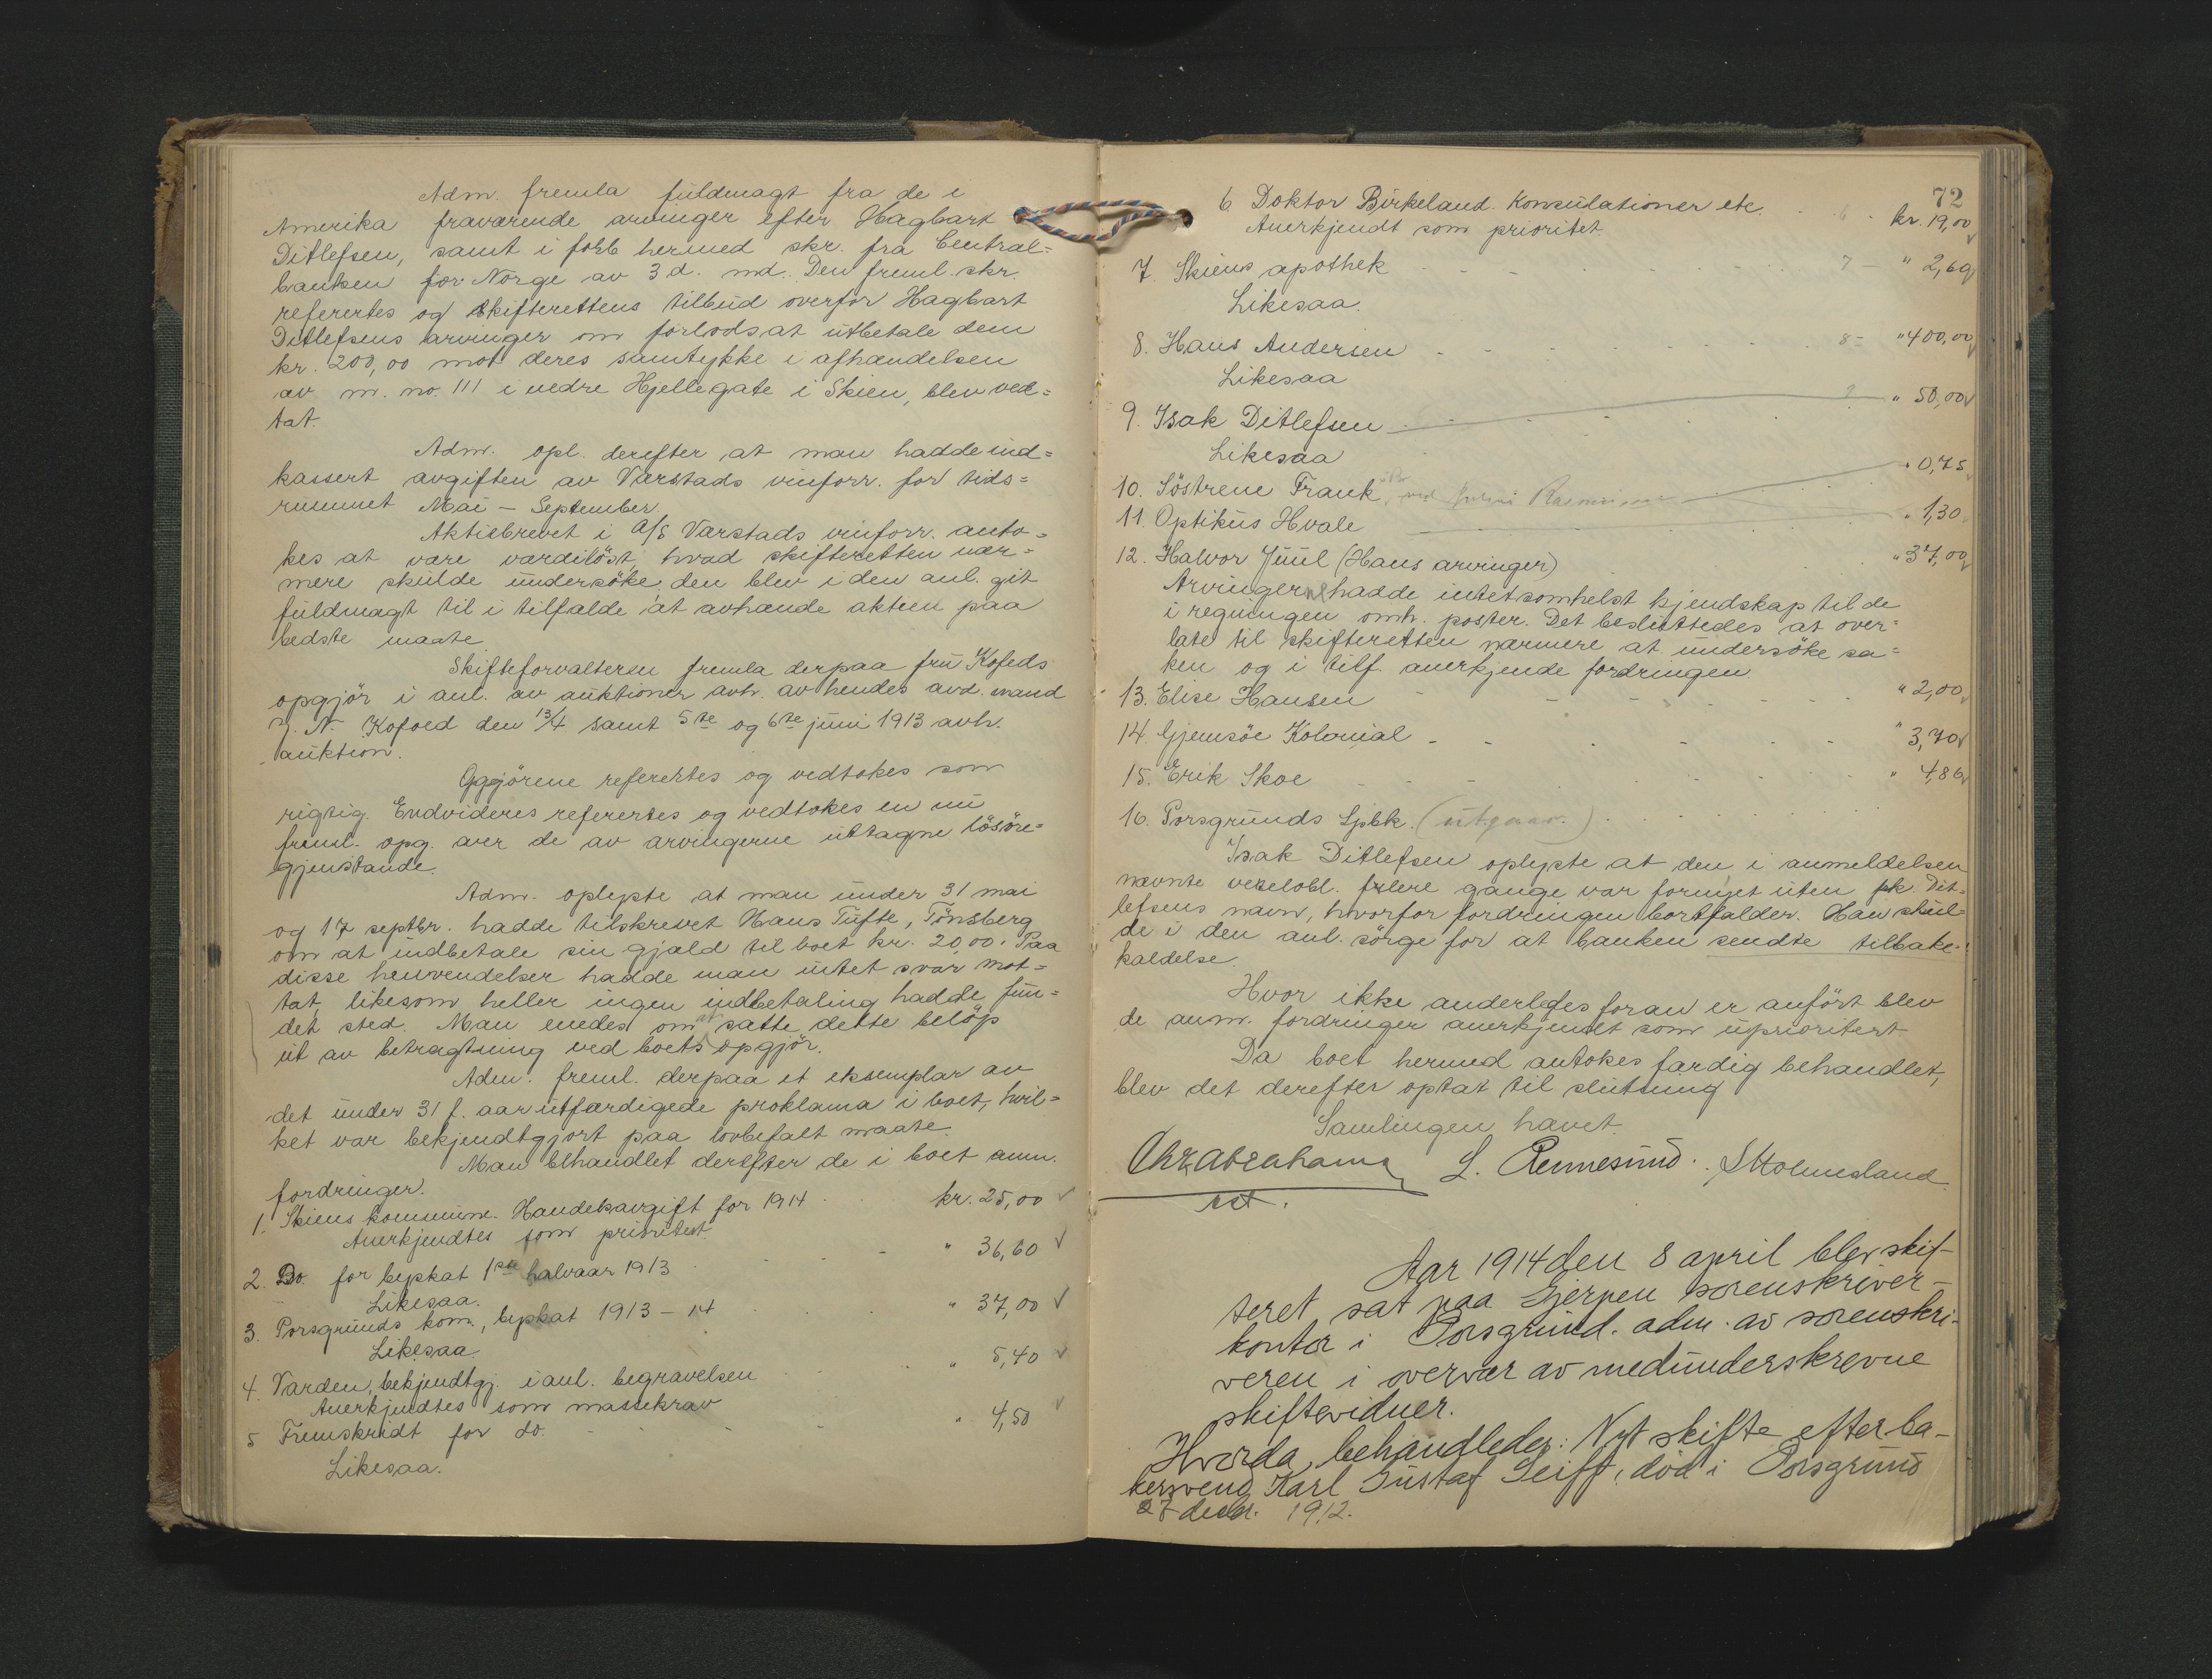 Adm. fremla fuldmagt fra de i
Amerika fraværende arvinger efter Hagbart
Ditlefsen, samt i forb. hermed skr. fra Central=
banken for Norge av 3 d. md. Den freml. skr.
referertes og skifterettens tilbud overfor Hagbart
Ditlefsens arvinger om forlods at utbetale dem
kr. 200,00 mot deres samtykke i afhændelsen
av m. no. 111 i nedre Hjellegate i Skien, blev ved=
tat.
Adm. opl. derefter at man hadde ind=
kassert avgiften av Varstads vinforr. for tids=
rummet Mai - September.
Aktiebrevet i A/S Varstads vinforr. anto=
kes at være værdiløst, hvad skifteretten nær=
mere skulde undersöke, den blev i den anl. git
fuldmagt til i tilfælde at avhænde aktien paa
bedste maate.
Skifteforvalteren fremla derpaa fru Kofeds
opgjör i anl. av auktioner avh. av hendes avd. mand
J. N. Kofoed den 13/4 samt 5te og 6te juni 1913 avh.
auktion.
Opgjörene referertes og vedtokes som
rigtig. Endvideres refertes og vedtokes en nu
freml. opg. over de av arvingerne uttagne lösöre=
gjenstande.
Adm. oplyste at man under 31 mai
og 17 septbr. hadde tilskrevet Hans Tufte, Tönsberg
om at indbetale sin gjæld til boet kr. 20,00. Paa
disse henvendelser hadde man intet svar mot=
tat, likesom heller ingen indbetaling hadde fun=
det sted. Man enedes om at sætte dette belöp
ut av betragtning ved boets opgjör.
Adm. freml. derpaa et eksemplar av
det under 31 f. aar utfærdigede proklama i boet, hvil=
ket var bekjendtgjort paa lovbefalt maate.
Man behandlet derefter de i boet anm.
fordringer.
1. Skiens kommune. Handelsavgift for 1914 kr. 25,00
Anerkjendtes som prioritert.
2. Do. for bepskat 1ste halvaar 1913 " 36,60
Likesaa.
3. Porsgrunds kom., bepskat 1913 - 14 " 37,00
Likesaa
4. Varden, bekjendtgj. i anl. begravelsen " 5,40
Anerkjendtes som massekrav
5 Fremskridt for do. " 4,50
Likesaa.
72
6. Doktor Birkeland. Konsulationer etc. 6 kr. 19,00
Anerkjendt som prioritet.
7. Skiens apothek 7 - " 2,69
Likesaa.
8. Hans Andersen 8 - " 400,00
Likesaa
9. Isak Ditlefsen 9 " 50,00
Likesaa
10. Söstrene Frank " 0,75
11. Optikus Hvale " 1,30
12. Halvor Juul (Hans arvinger) " 37,00
Arvingerne hadde intetsomhelst kjendskap til de
i regningen omh. poster. Det besluttedes at over=
late til skifteretten nærmere at undersöke sa=
ken og i tilf. anerkjende fordringen.
13. Elise Hansen " 2,00
14. Gjemsöe Kolonial " 3,70
15. Erik Skoe " 4,86
16. Porsgrunds Spbk. (utgaar.)
Isak Ditlefsen oplyste at den i anmeldelsen
nævnte vekselobl. flere gange var fornyet uten Dit=
lefsens navn, hvorfor fordringen bortfalder. Han skul=
de i den anl. sörge for at banken sendte tilbake=
kaldelse.
Hvor ikke anderledes foran er anfört blev
de anm. fordringer anerkjendt som uprioritert.
Da boet hermed antokes færdig behandlet,
blev det derefter optat til slutning
Samlingen hævet.
Chr Abrahams L. Rennesund. S Holmesland
Aar 1914 den 8 april blev skif-
teret sat paa Gjerpen sorenskriver-
kontor i Porsgrund. adm. av sorenskri-
veren i overvær av medunderskrevne
skiftevidner.
Hvorda behandledes: Nyt skifte efter ba-
kersvend Karl Gustaf Seiff, död i Porsgrund
27 decbr. 1912.